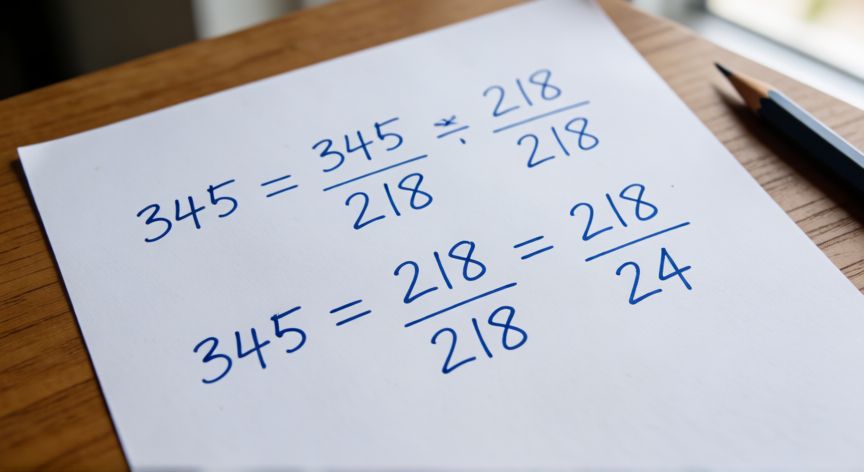 345 = 345/218 ÷ 218/218
345 = 218/218 = 218/24